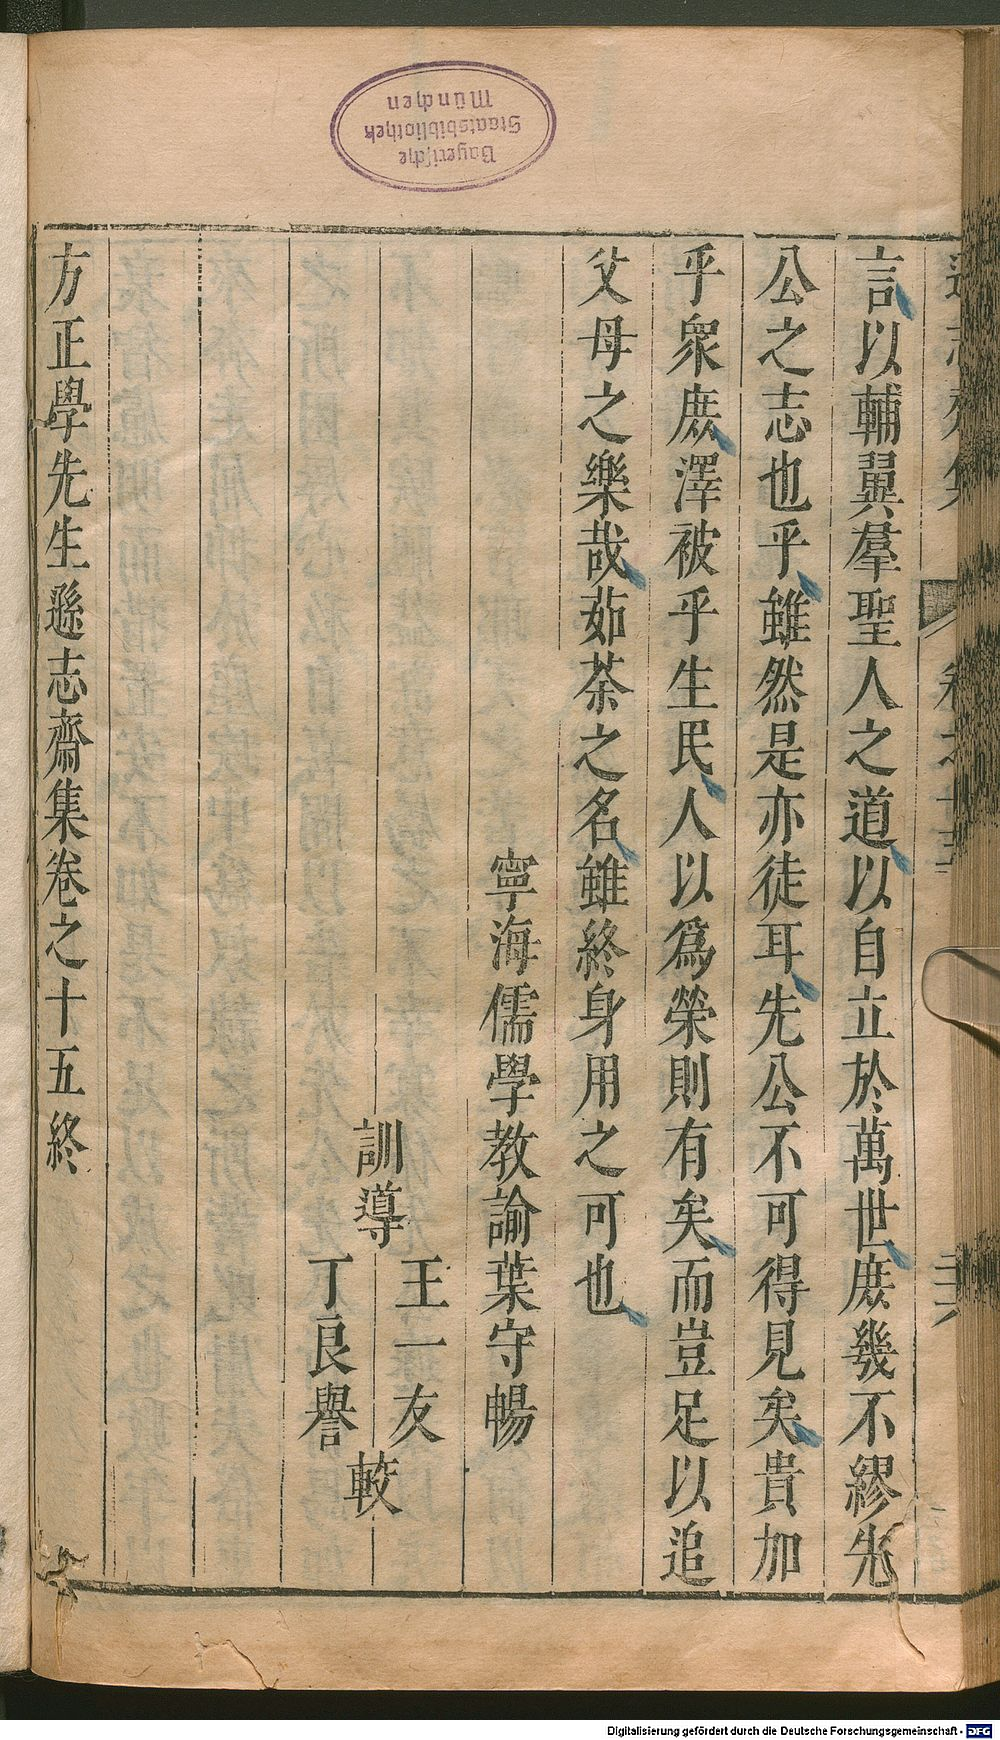 言以輔翼羣聖人之道以自立於萬世庶幾不繆先
公之志也乎雖然是亦徒耳先公不可得見矣貴加
乎衆庶澤被乎生民人以爲榮則有矣而豈足以追
父母之樂哉茹荼之名雖終身用之可也
寧海儒學教諭葉守暢
訓導
王一友
丁良譽
較
方正學先生遜志齋集卷之十五終
Bayerische
Staatsbibliothek
München
Digitalisierung gefördert durch die Deutsche Forschungsgemeinschaft - DFG